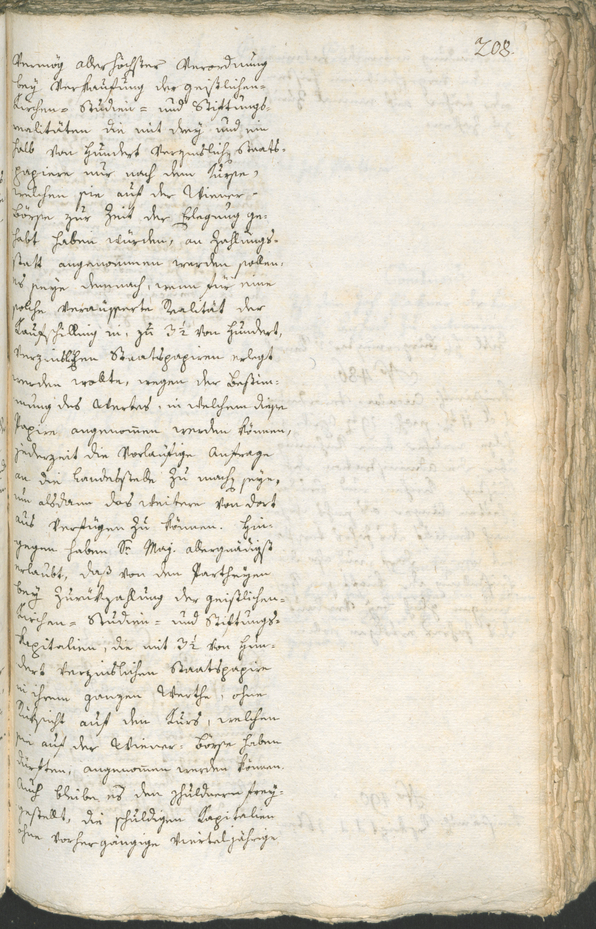 208.
Vermög allerhöchster Verordnung
bey Verkaufung der geistlichen-
Kirchen- Studien- und Stiftungs-
realitäten die mit drey und ein
halb von Hundert verzinslich Staats-
papiere nur nach dem Kurse,
welchen sie auf der Wiener-
börse zur Zeit der Erlegung ge-
habt haben würden, an Zahlungs-
statt angenommen werden sollen,
es seye demnach, wenn für eine
solche veräusserte Realität der
Kaufschilling in, zu 3½ von Hundert,
verzinslichen Staatspapiren erlegt
werden wollte, wegen der Bestim-
mung des Werthes, in welchem diese
Papire angenommen werden können,
jederzeit die vorläufige Anfrage
an die Landesstelle zu mach seye,
um alsdann das weitere von dort
aus verfügen zu können. Hin-
gegen haben Se Maj. allergnädigst
erlaubt, daß von den Partheyen
bey Zurükzahlung der geistlichen-
Kirchen- Studien- und Stiftungs-
Kapitalien, die mit 3½ von Hun-
dert verzinslichen Staatspapire
in ihrem ganzen Werthe, ohne
Rüksicht auf den Kurs, welchen
sie auf der Wiener Börse haben
dürften, angenommen werden können.
Auch bleibe es den Schuldnern frey-
gestellt, die schuldigen Kapitalien
ohne vorhergängige vierteljährige